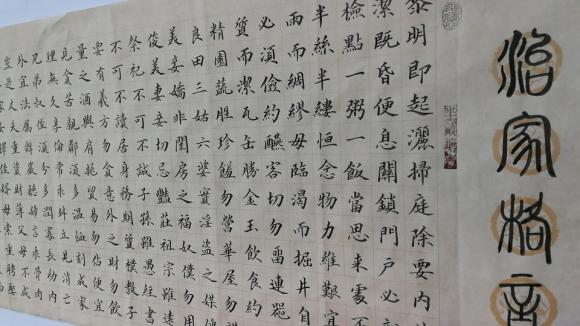 治家格言
黎明即起灑掃庭除要內
潔既昏便息關鎖門戶必
檢點一粥一飯當思來處不
半絲半縷恒念物力維艱宜
雨而綢繆毋臨渴而掘井自
必須儉約醼客切勿留連器
質而潔瓦缶勝金玉飲食約
精園蔬勝珍饈勿營華屋勿
良田三姑六婆實淫盜之媒
美妾嬌非閨房之福奴僕勿用
俊美妻妾切忌豔莊祖宗雖遠
祭祀不可不誠子孫雖愚經書
不可不讀居身務期質樸教子
要有義方勿貪意外之財勿飲
量之酒與肩挑貿易勿佔便宜
見貧苦親鄰須多溫恤刻成家
理無久享倫常乖舛立見消亡
兄弟叔侄須分多潤寡長幼內
外宜屬辭嚴聽婦言乖骨肉
豈是丈夫重資財薄父母不成